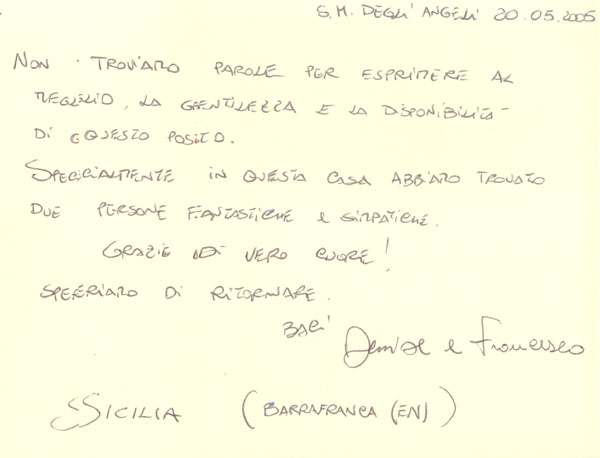 S.M. DEGLI ANGELI 20.05.2005
NON TROVIAMO PAROLE PER ESPRIMERE AL
MEGLIO, LA GENTILEZZA E LA DISPONIBILITA'
DI QUESTO POSTO.
SPECIALMENTE IN QUESTA CASA ABBIAMO TROVATO
DUE PERSONE FANTASTICHE E SIMPATICHE.
GRAZIE DI VERO CUORE!
SPERIAMO DI RITORNARE.
BACI Denise e Francesco
SICILIA (BARRAFRANCA (EN))